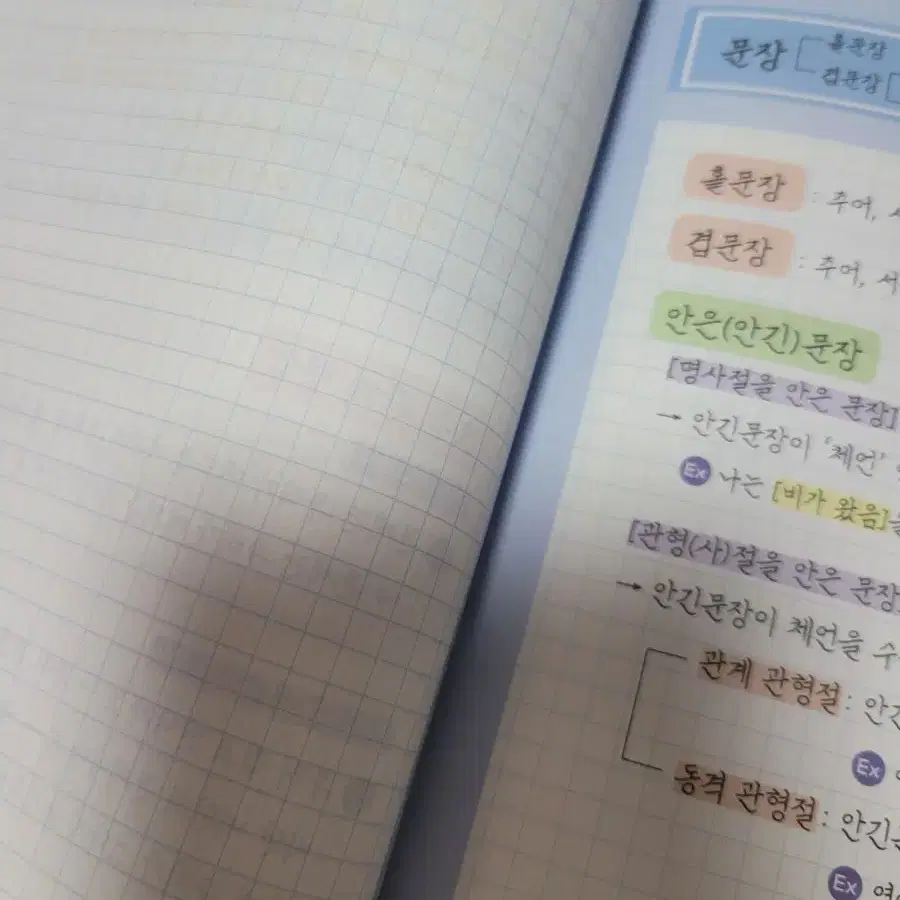 문장 홑문장
겹문장
홑문장 : 주어,
겹문장 : 주어, 서
안은(안긴)문장
[명사절을 안은 문장]
→ 안긴문장이 '체언'
Ex 나는 [비가 왔음]을
[관형(사)절을 안은 문장]
→ 안긴문장이 체언을 수
관계 관형절: 안긴
Ex
동격 관형절: 안긴
Ex